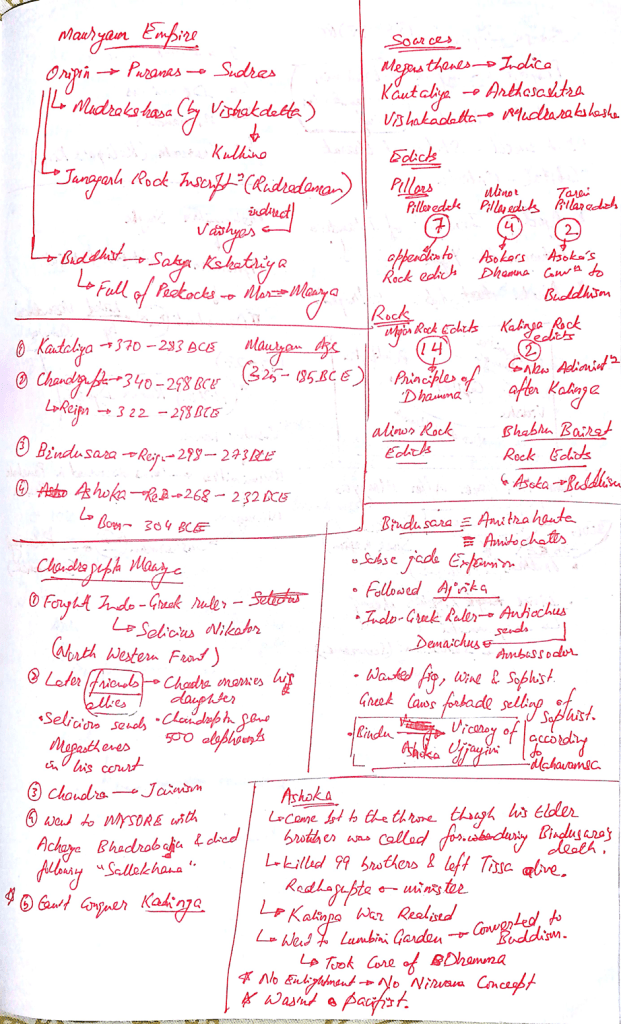 Mauryan Empire
Origin → Puranas → Sudras
↳ Mudrakshasa (by Vishakdatta)
↓
Kulhina
↳ Junagarh Rock Inscript^n (Rudradaman)
indirect
Vaishyas ↵
↳ Buddhist → Sakya Kshatriya
↳ Full of Peacocks → Mor → Maurya
Sources
Megasthenes → Indica
Kautaliya → Arthasashtra
Vishakadatta → Mudrarakshasha
Edicts
Pillars
Pillar edicts
7
appendix to
Rock edicts
Minor
Pillar edicts
4
Asoka's
Dhamma
Tarai
Pillar edicts
2
Asoka's
Conv^n to
Buddhism
Rock
Major Rock Edicts
14
Principles of
Dhamma
Kalinga Rock
edicts
2
↳ New Adminis^n
after Kalinga
Minor Rock
Edicts
Bhabru Bairat
Rock Edicts
↳ Asoka → Buddhism
Mauryan Age
(325 - 185 BCE)
① Kautaliya → 370 - 283 BCE
② Chandragupta → 340 - 298 BCE
↳ Reign → 322 - 298 BCE
③ Bindusara → Reign → 298 - 273 BCE
④ Ashoka → → 268 - 232 BCE
↳ Born → 304 BCE
Chandragupta Maurya
① Fought Indo-Greek ruler -
↳ Selicius Nikator
(North Western Front)
② Later friends → Chandra marries his
allies daughter
• Selicios sends
Megasthenes
in his court
• Chandrgpta gave
500 elephants
③ Chandra → Jainism
④ Went to MYSORE with
Acharya Bhadrabahu & died
following "Sallekhana"
* ⑤ Can't Conquer Kalinga
Bindusara ≡ Amitrahanta
≡ Amitochates
• Followed Ajivika
• Indo-Greek Ruler → Antiochus
sends
Demaichus ← Ambassador
• Wanted fig, Wine & Sophist.
Greek laws forbade selling of
Sophist.
• Bindu → Viceroy of
Ashoka Ujjayini
according
to
Mahavamsa
Ashoka
↳ Came to the throne though his Elder
brother was called for during Bindusara's
death.
↳ Killed 99 brothers & left Tissa alive.
Radhagupta ← minister
↳ Kalinga War Realised
↳ Went to Lumbini Garden → Converted to
Buddism.
↳ Took Care of Dhamma
* No Enlightment → No Nirvana Concept
* Wasint a pacifist.